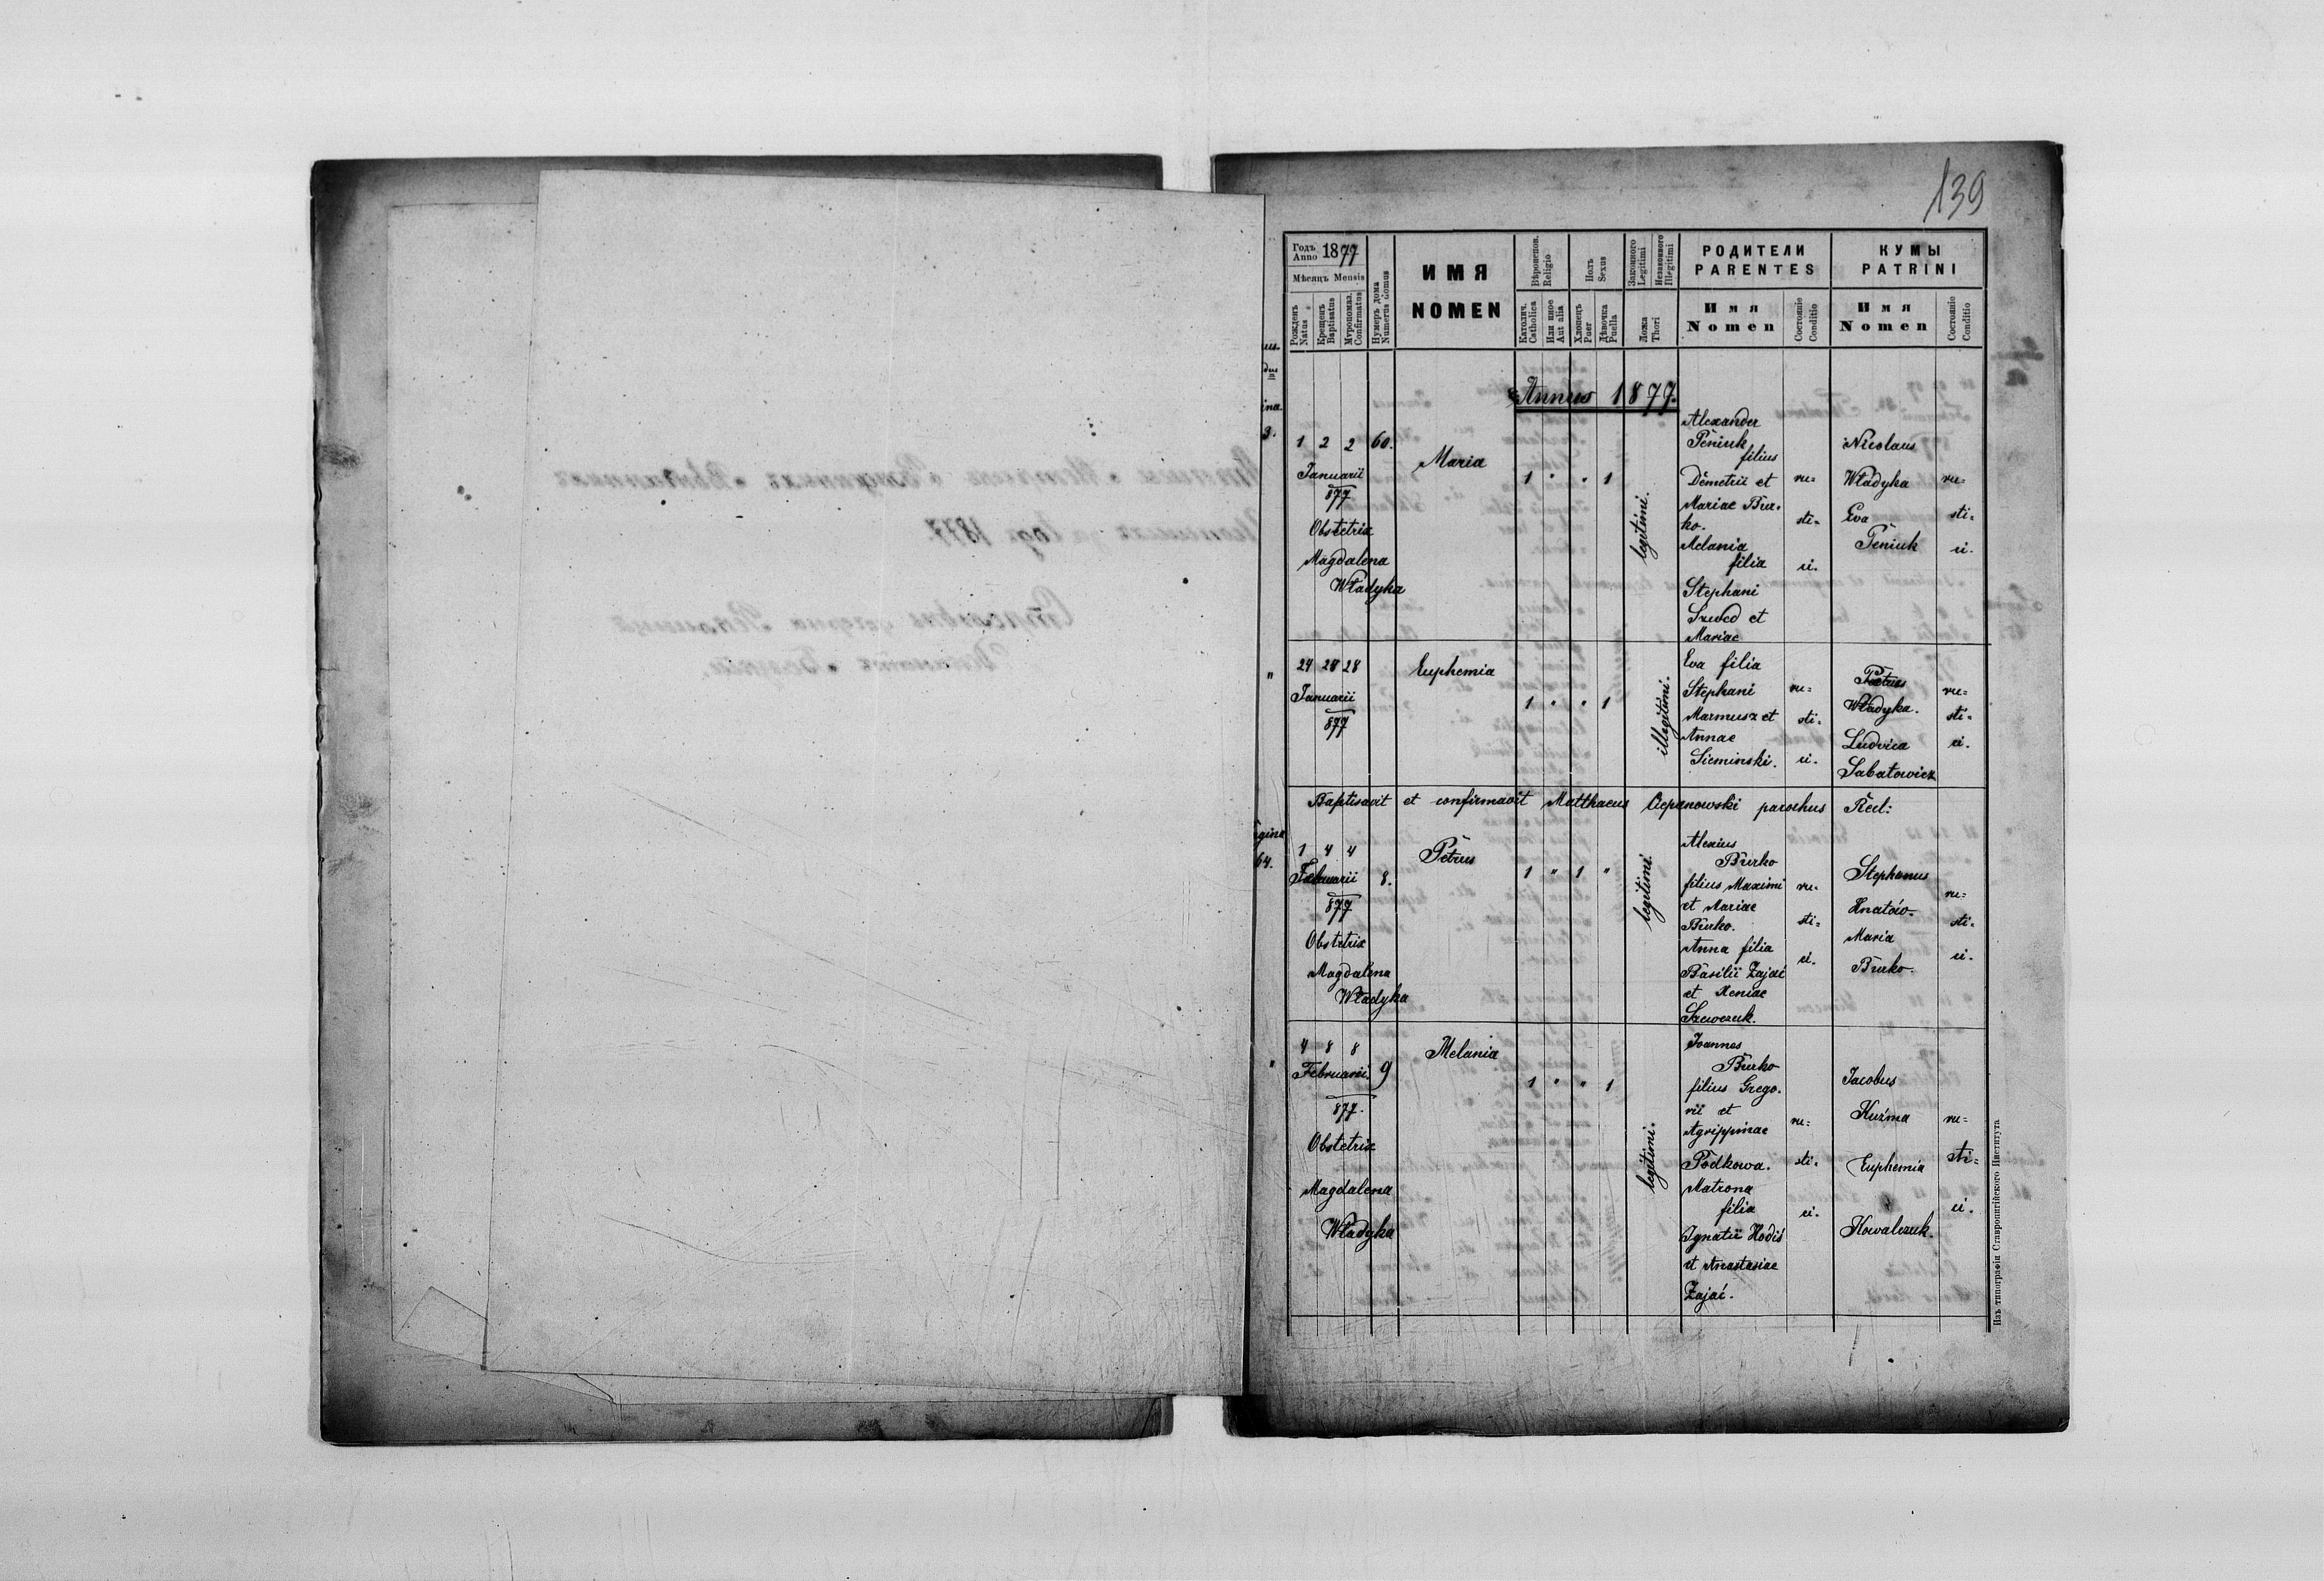 139
Годъ Anno 1877
Мѣсяцъ Mensis
Рожденъ Natus
Крещенъ Baptisatus
Мѵропомаз. Confirmatus
Нумеръ дома Numerus domus
ИМЯ
NOMEN
Вѣроисповѣд. Religio
Католич. Catholica
Или иное Aut alia
Полъ Sexus
Хлопецъ Puer
Дѣвочка Puella
Законного Legitimi
Незаконного Illegitimi
Ложа Thori
РОДИТЕЛИ
PARENTES
Имя
Nomen
Состояніе Conditio
КУМЫ
PATRINI
Имя
Nomen
Состояніе Conditio
Annus 1877.
1 2 2 60.
Januarii
877
Obstetrix
Magdalena
Władyka
Maria
1 " " 1
legitimi.
Alexander
Peniuk
filius
Demetrii et
Mariae Bur-
ko.
Melania
filia
Stephani
Szwed et
Mariae
ru=
sti=
ci.
Nicolaus
Władyka
Eva
Peniuk
ru=
sti=
ci.
" 24 28 28
Januarii
877
Euphemia
1 " " 1
illegitimi.
Eva filia
Stephani
Marmusz et
Annae
Sieminski.
ru=
sti=
ci.
Petrus
Władyka.
Ludvica
Sabatowicz
ru=
sti=
ci.
Baptisavit et confirmavit Matthaeus parochus
1 4 4
Februarii 8.
877
Obstetrix
Magdalena
Władyka
Petrus
1 " 1 "
legitimi.
Alexius
Burko
filius Maximi
et Mariae
Burko.
Anna filia
Basilii Zajac
et Xeniae
Szewczuk.
ru=
sti=
ci.
Stephanus
Hnatów.
Maria
Burko.
ru=
sti=
ci.
" 4 8 8
Februarii. 9
877.
Obstetrix
Magdalena
Władyka
Melania
1 " " 1
legitimi.
Joannes
Burko
filius Grego-
rii et
Agrippinae
Podkowa.
Matrona
filia
Ignatii Hodiś
et Anastasiae
Zajać.
ru=
sti=
ci.
Jacobus
Kuźma
Euphemia
Kowalczuk.
ru=
sti=
ci.
Изъ типографіи Ставропигійского Института